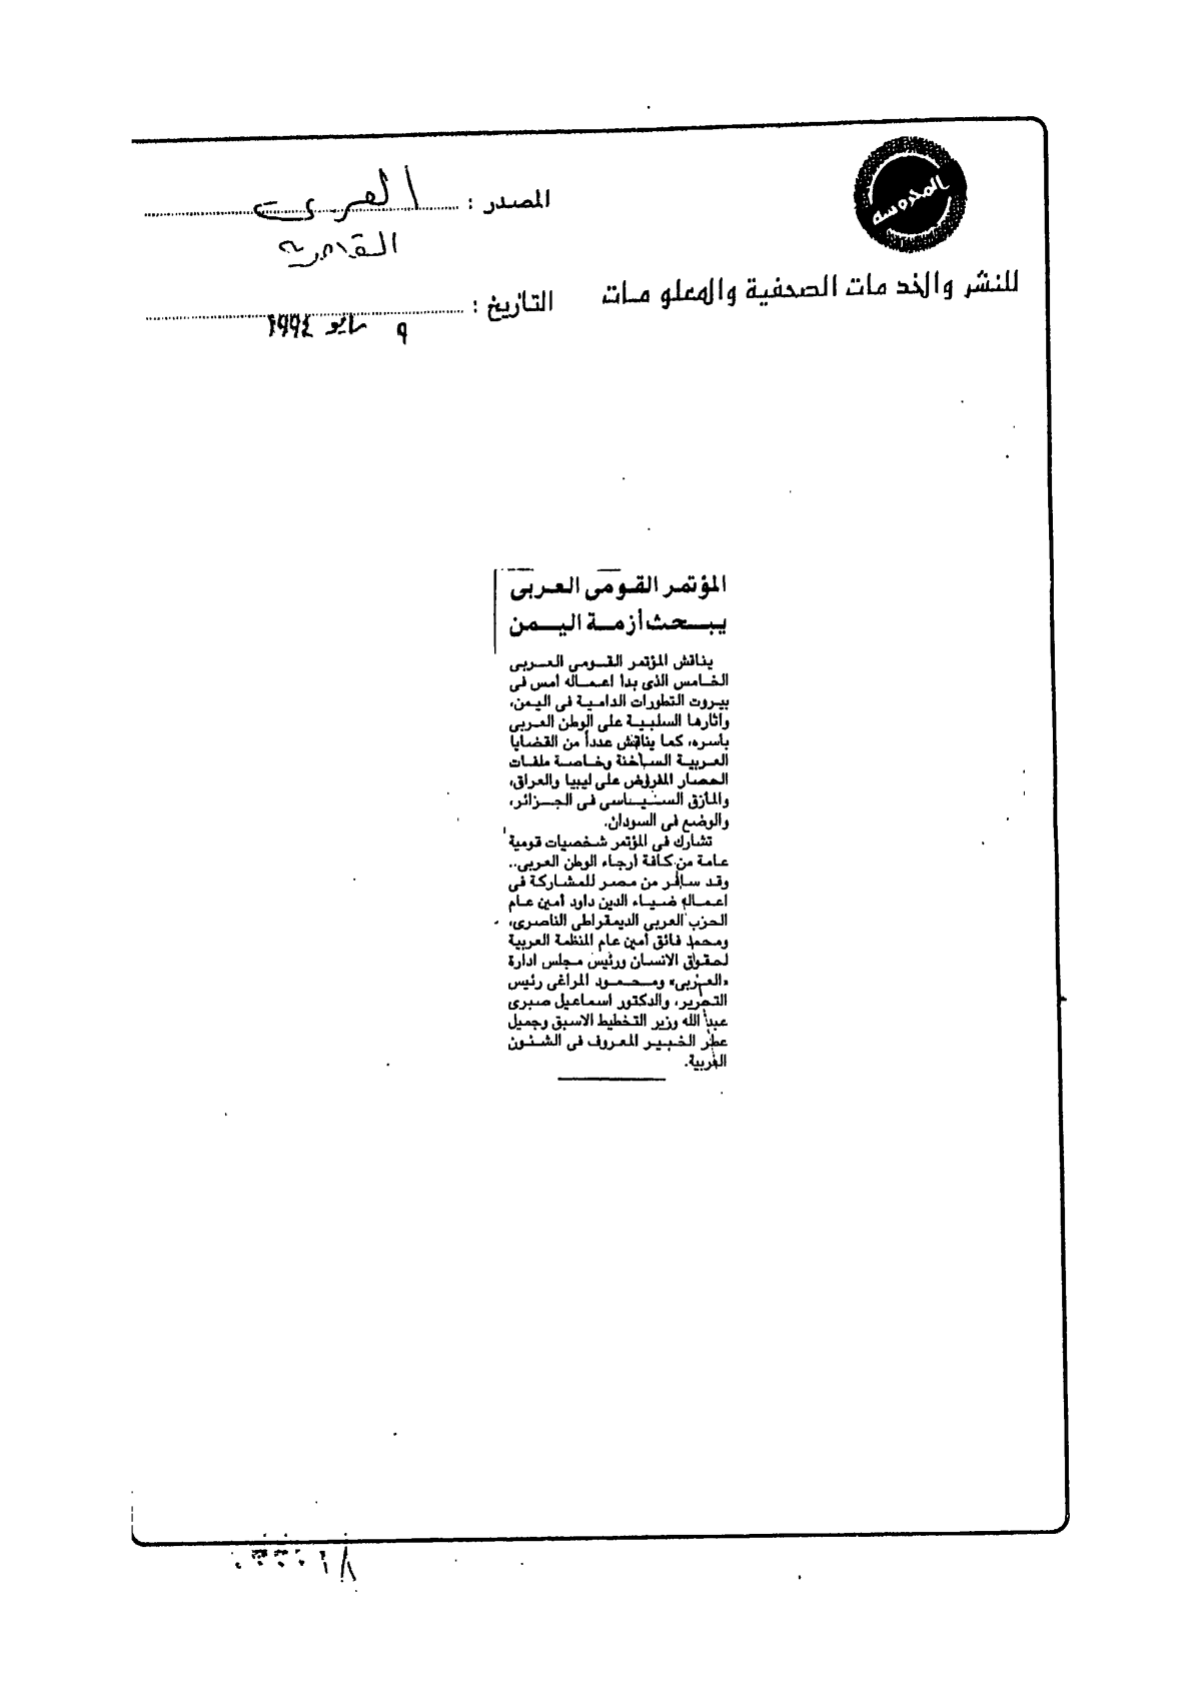 المحروسة
للنشر والخدمات الصحفية والمعلومات
المصدر : العربى
القاهرية
التاريخ : ٩ مايو ١٩٩٤
المؤتمر القومى العربى
يبحث أزمة اليمن
يناقش المؤتمر القومى العربى
الخامس الذى بدا اعماله امس فى
بيروت التطورات الدامية فى اليمن،
وآثارها السلبية على الوطن العربى
بأسره، كما يناقش عدداً من القضايا
العربية الساخنة وخاصة ملفات
الحصار المفروض على ليبيا والعراق،
والمأزق السياسى فى الجزائر،
والوضع فى السودان.
تشارك فى المؤتمر شخصيات قومية
عامة من كافة أرجاء الوطن العربى..
وقد سافر من مصر للمشاركة فى
اعماله ضياء الدين داود أمين عام
الحزب العربى الديمقراطى الناصرى،
ومحمد فائق أمين عام المنظمة العربية
لحقوق الانسان ورئيس مجلس ادارة
«العربى» ومحمود المراغى رئيس
التحرير، والدكتور اسماعيل صبرى
عبد الله وزير التخطيط الاسبق وجميل
مطر الخبير المعروف فى الشئون
العربية.